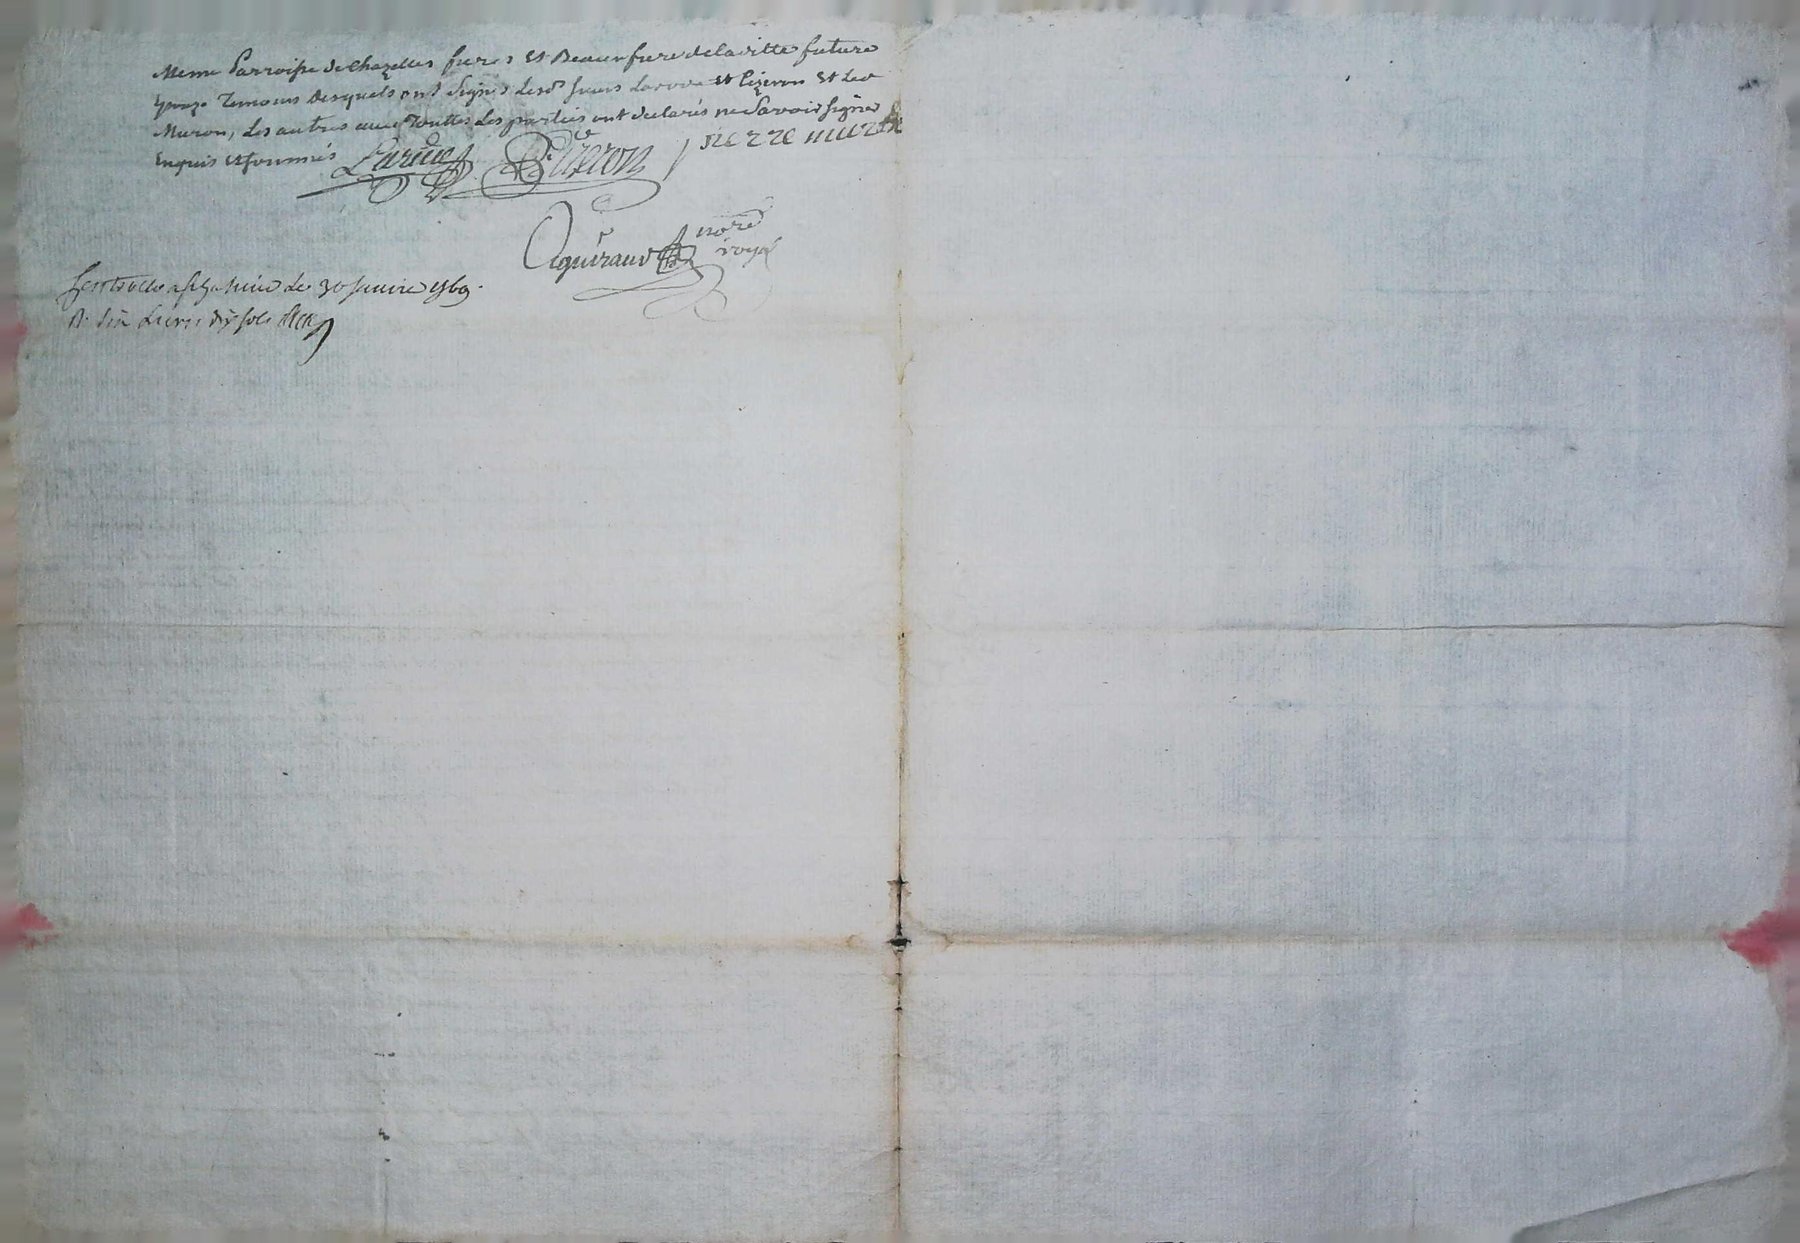 Meme Parroisse de Chazelles freres et Beaux frere de laditte future
Epouze Temoins desquels ont signés lesds srs Larova et Pizeron et led
Muron, les autres avec touttes les parties ont declarés ne Savoir signer
Enquis et sommés Larova Pizeron pierre muron
Aguiraud nore
royal
Controllé a st galmier le 30 janvier 1769.
R. six Livres dix sols